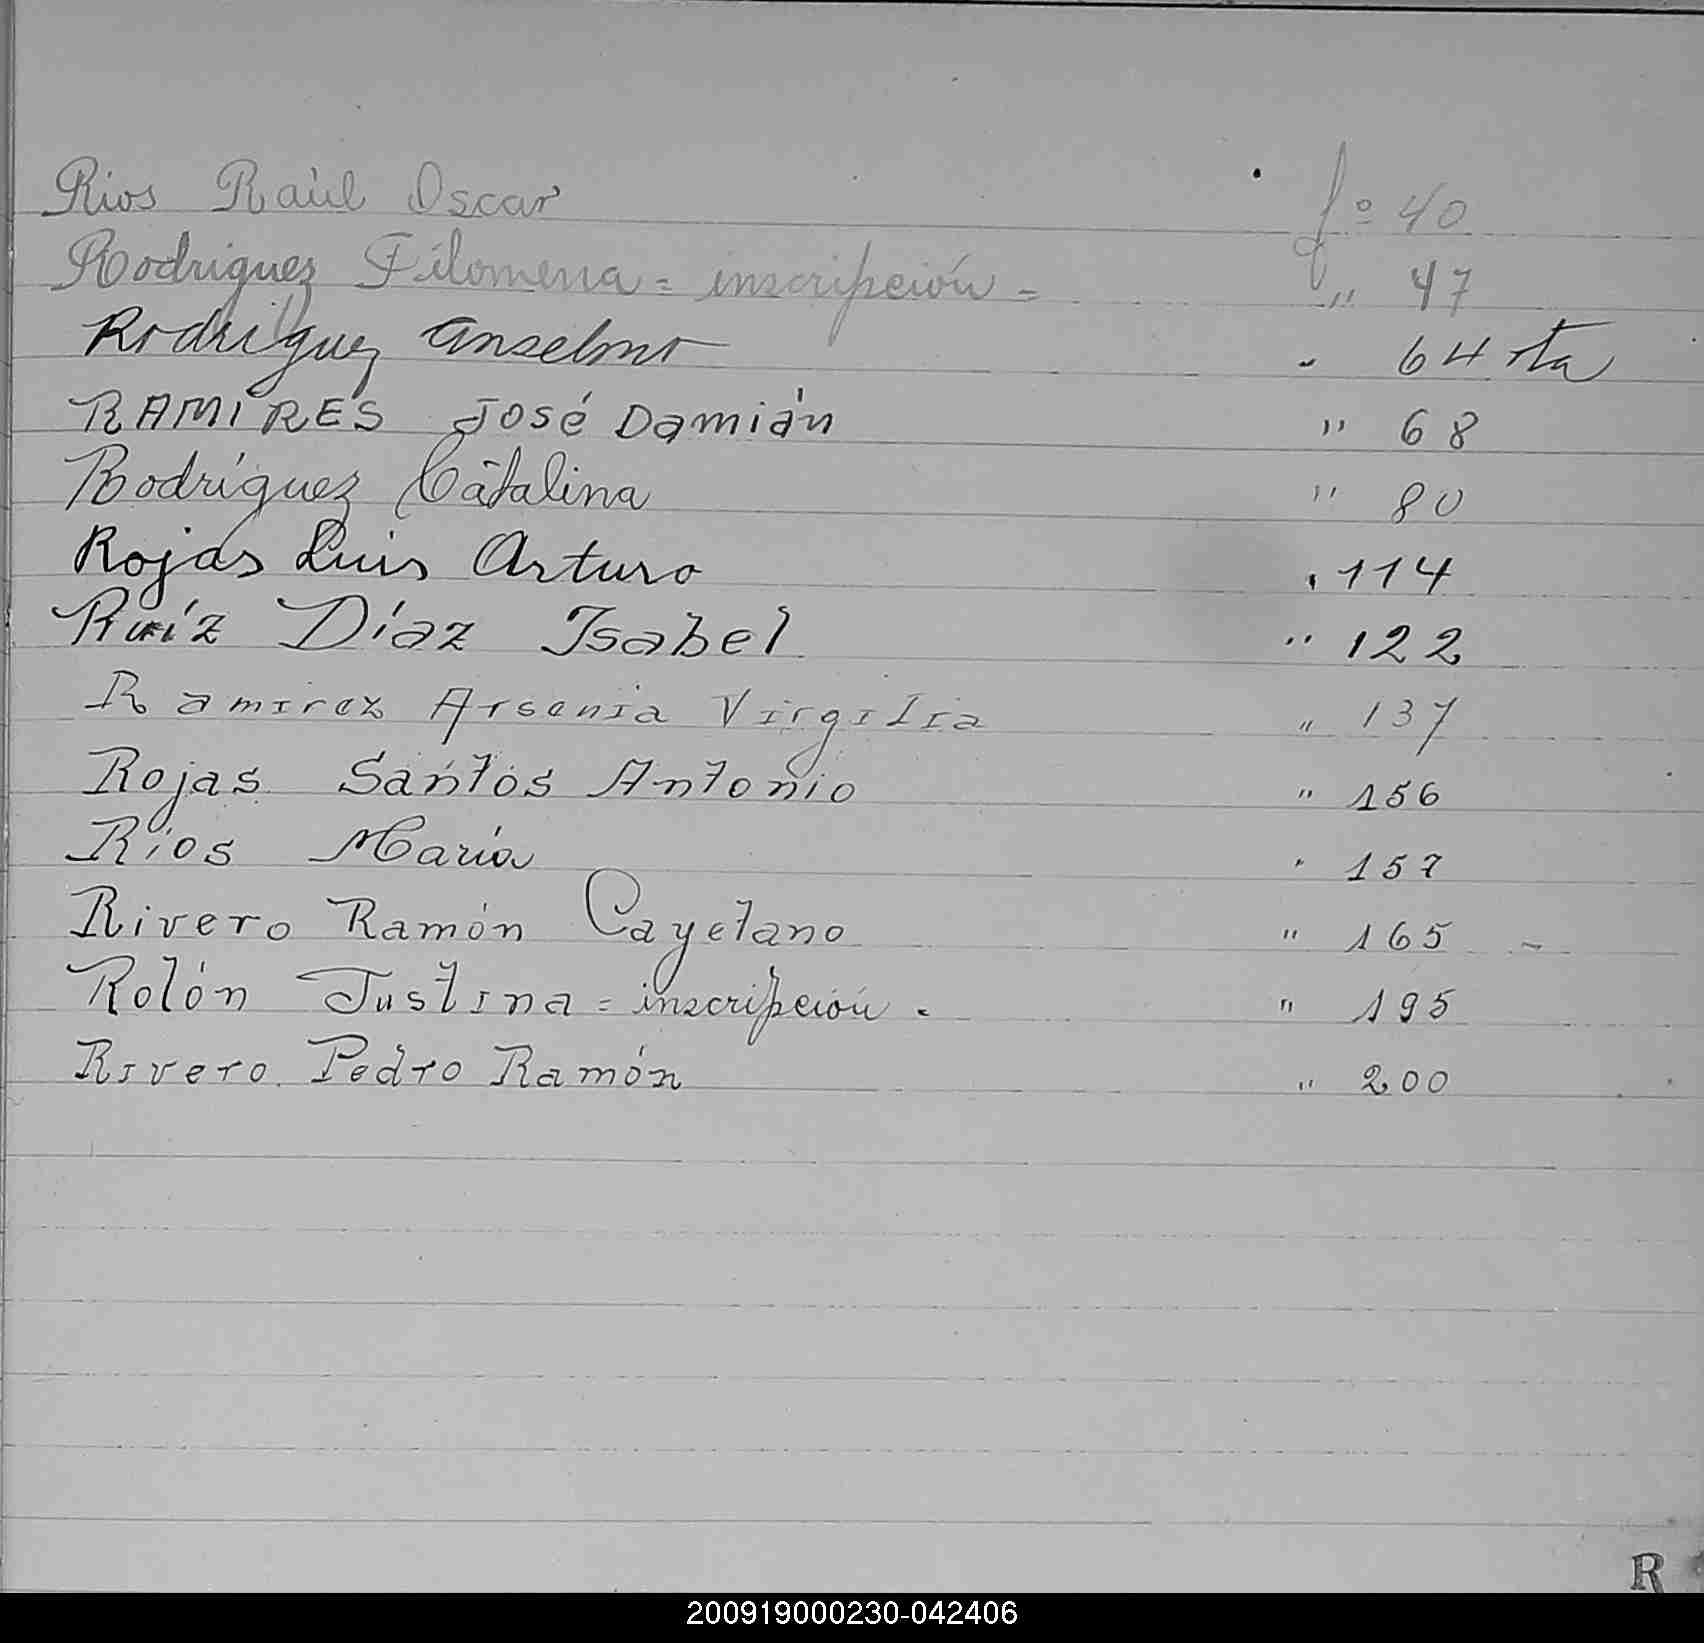 Rios Raúl Oscar fº 40
Rodriguez Filomena = inscripción = " 47
Rodriguez Anselmo " 64 vta
RAMIRES José Damián " 68
Rodríguez Catalina " 80
Rojas Luis Arturo " 114
Ruíz Díaz Isabel " 122
Ramirez Arsenia Virgilia " 137
Rojas Santos Antonio " 156
Ríos María " 157
Rivero Ramón Cayetano " 165
Rolón Justina = inscripción. " 195
Rivero Pedro Ramón " 200
R
200919000230-042406